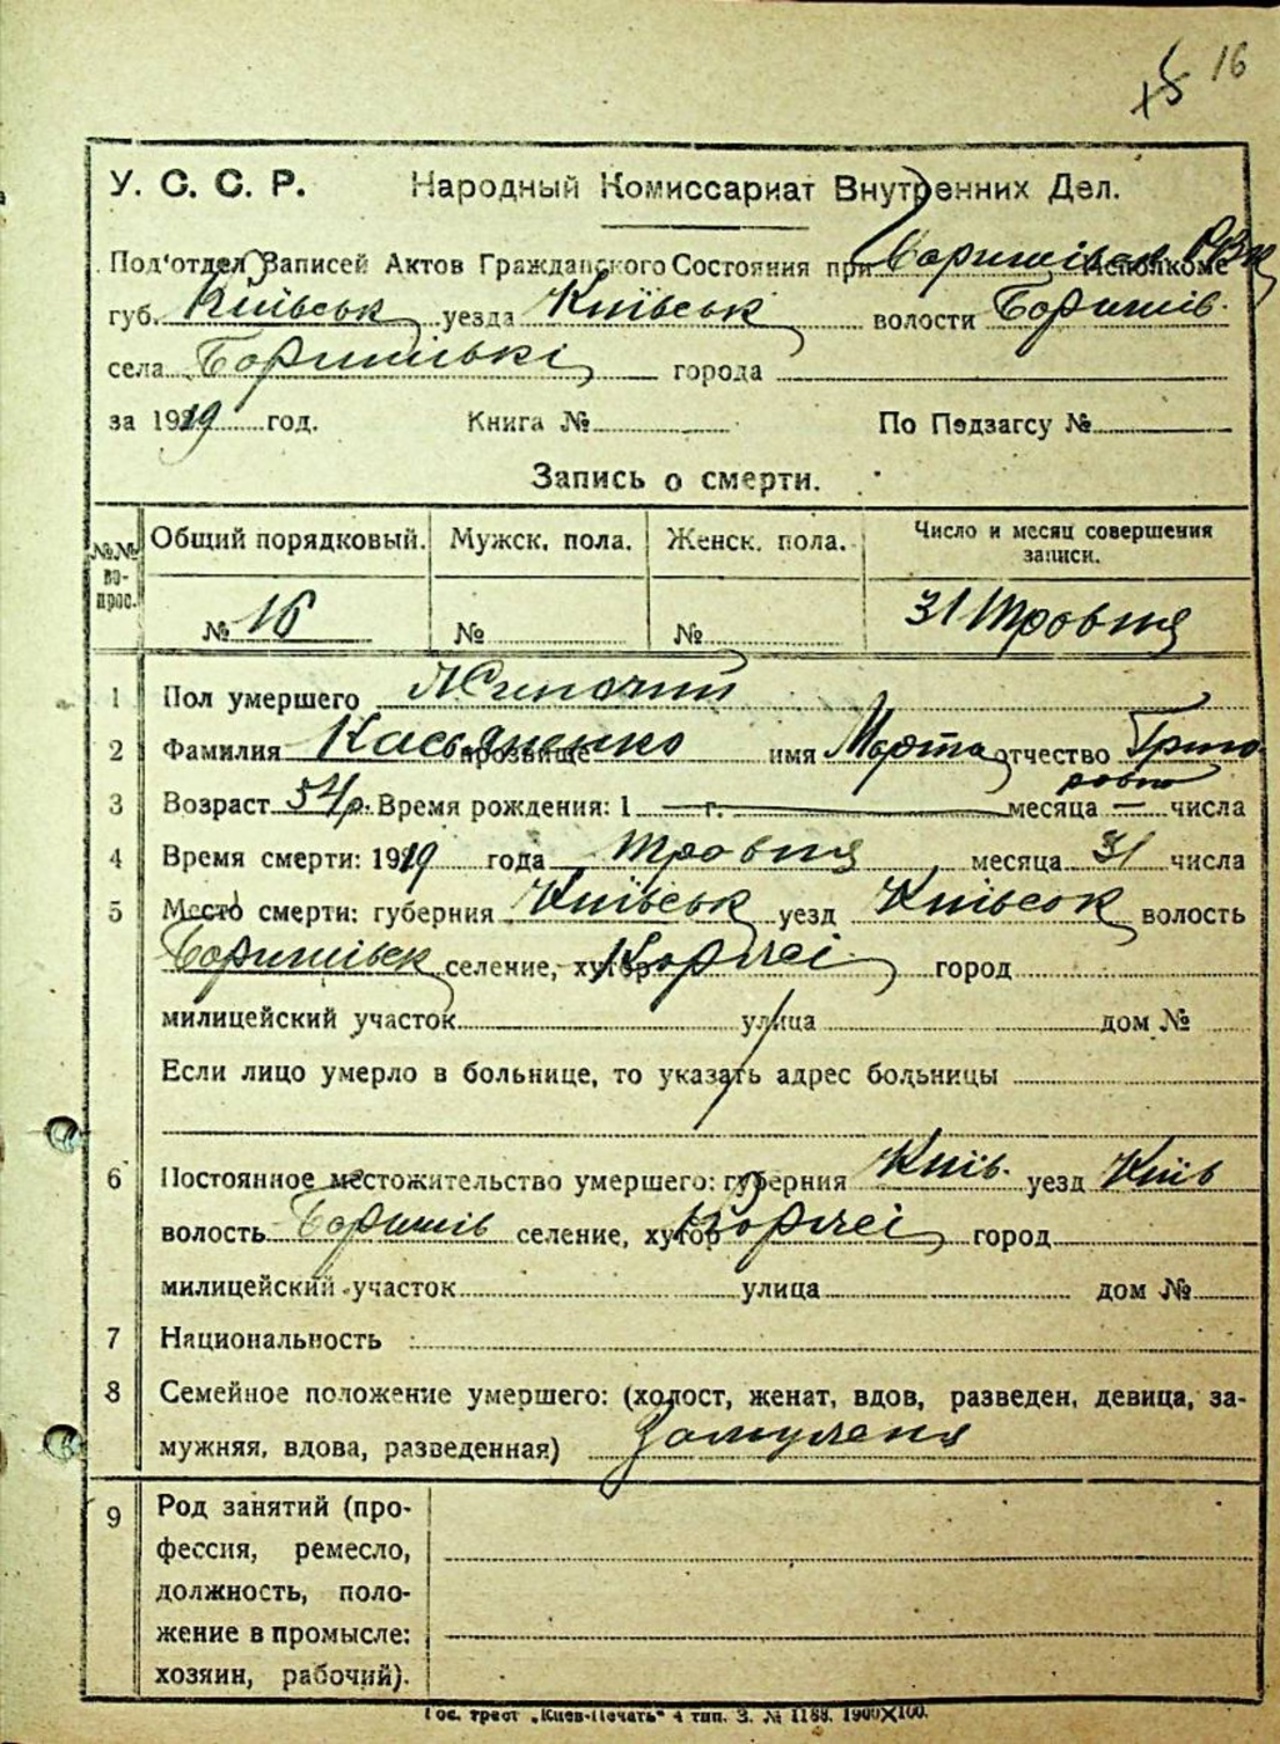 16
У. С. С. Р. Народный Комиссариат Внутренних Дел.
Под'отдел Записей Актов Гражданского Состояния при Баришівськ РВК Исполкоме
губ. Київськ уезда Київськ волости Баришів.
села Баришівкі города
за 1919 год. Книга № По Подзагсу №
Запись о смерти.
№№ во-прос. Общий порядковый. Мужск. пола. Женск. пола. Число и месяц совершения записи.
№ 16 № № 31 Травня
1 Пол умершего Жиночий
2 Фамилия Касьяненко прозвище имя Марта отчество Григо
ровна
3 Возраст 54 р. Время рождения: 1 — г. — месяца — числа
4 Время смерти: 1919 года Травня месяца 31 числа
5 Место смерти: губерния Київськ уезд Київськ волость
Баришівськ селение, хутор Коржі город
милицейский участок улица дом №
Если лицо умерло в больнице, то указать адрес больницы
6 Постоянное местожительство умершего: губерния Київ. уезд Київ
волость Баришів селение, хутор Коржі город
милицейский участок улица дом №
7 Национальность
8 Семейное положение умершего: (холост, женат, вдов, разведен, девица, за-
мужняя, вдова, разведенная) Замужня
9 Род занятий (про-
фессия, ремесло,
должность, поло-
жение в промысле:
хозяин, рабочий).
Гос. трест „Киев-Печать“ 4 тип. З. № 1188. 1900×100.